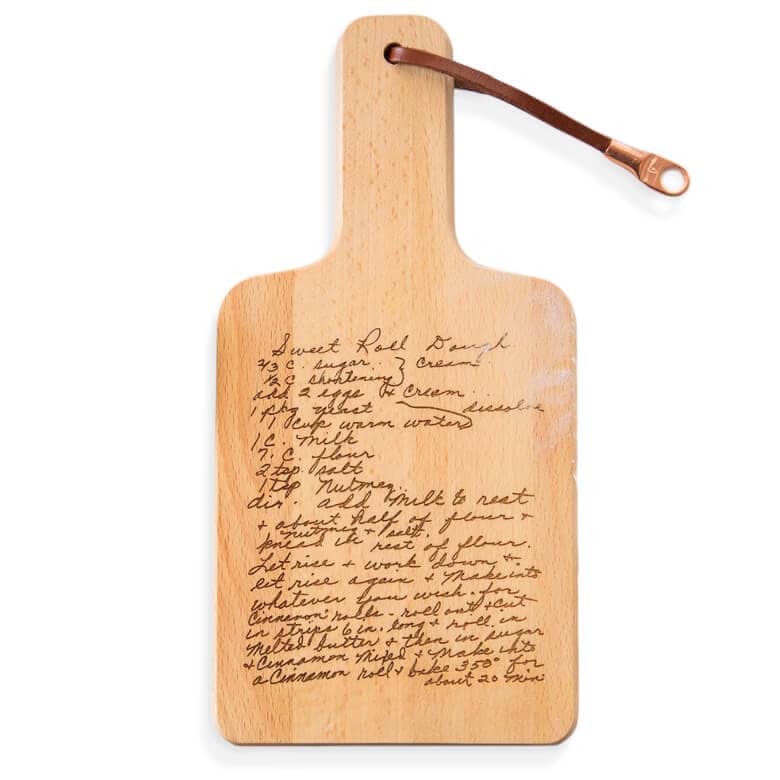 Sweet Roll Dough
2/3 C. sugar } cream
1/2 C shortening
add 2 eggs & cream
1 pkg yeast dissolve
1 cup warm water
1 C. Milk
7. C. flour
2 tsp salt
1 tsp Nutmeg
dir. add Milk to rest
& about half of flour &
nutmeg & salt.
knead in rest of flour.
Let rise & work down &
let rise again & Make into
whatever you wish. for
Cinnemon rolls - roll out & cut
in strips 6 in. long & roll in
Melted butter & then in sugar
& Cinnamon Mixed & Make into
a Cinnamon roll & bake 350° for
about 20 Min.